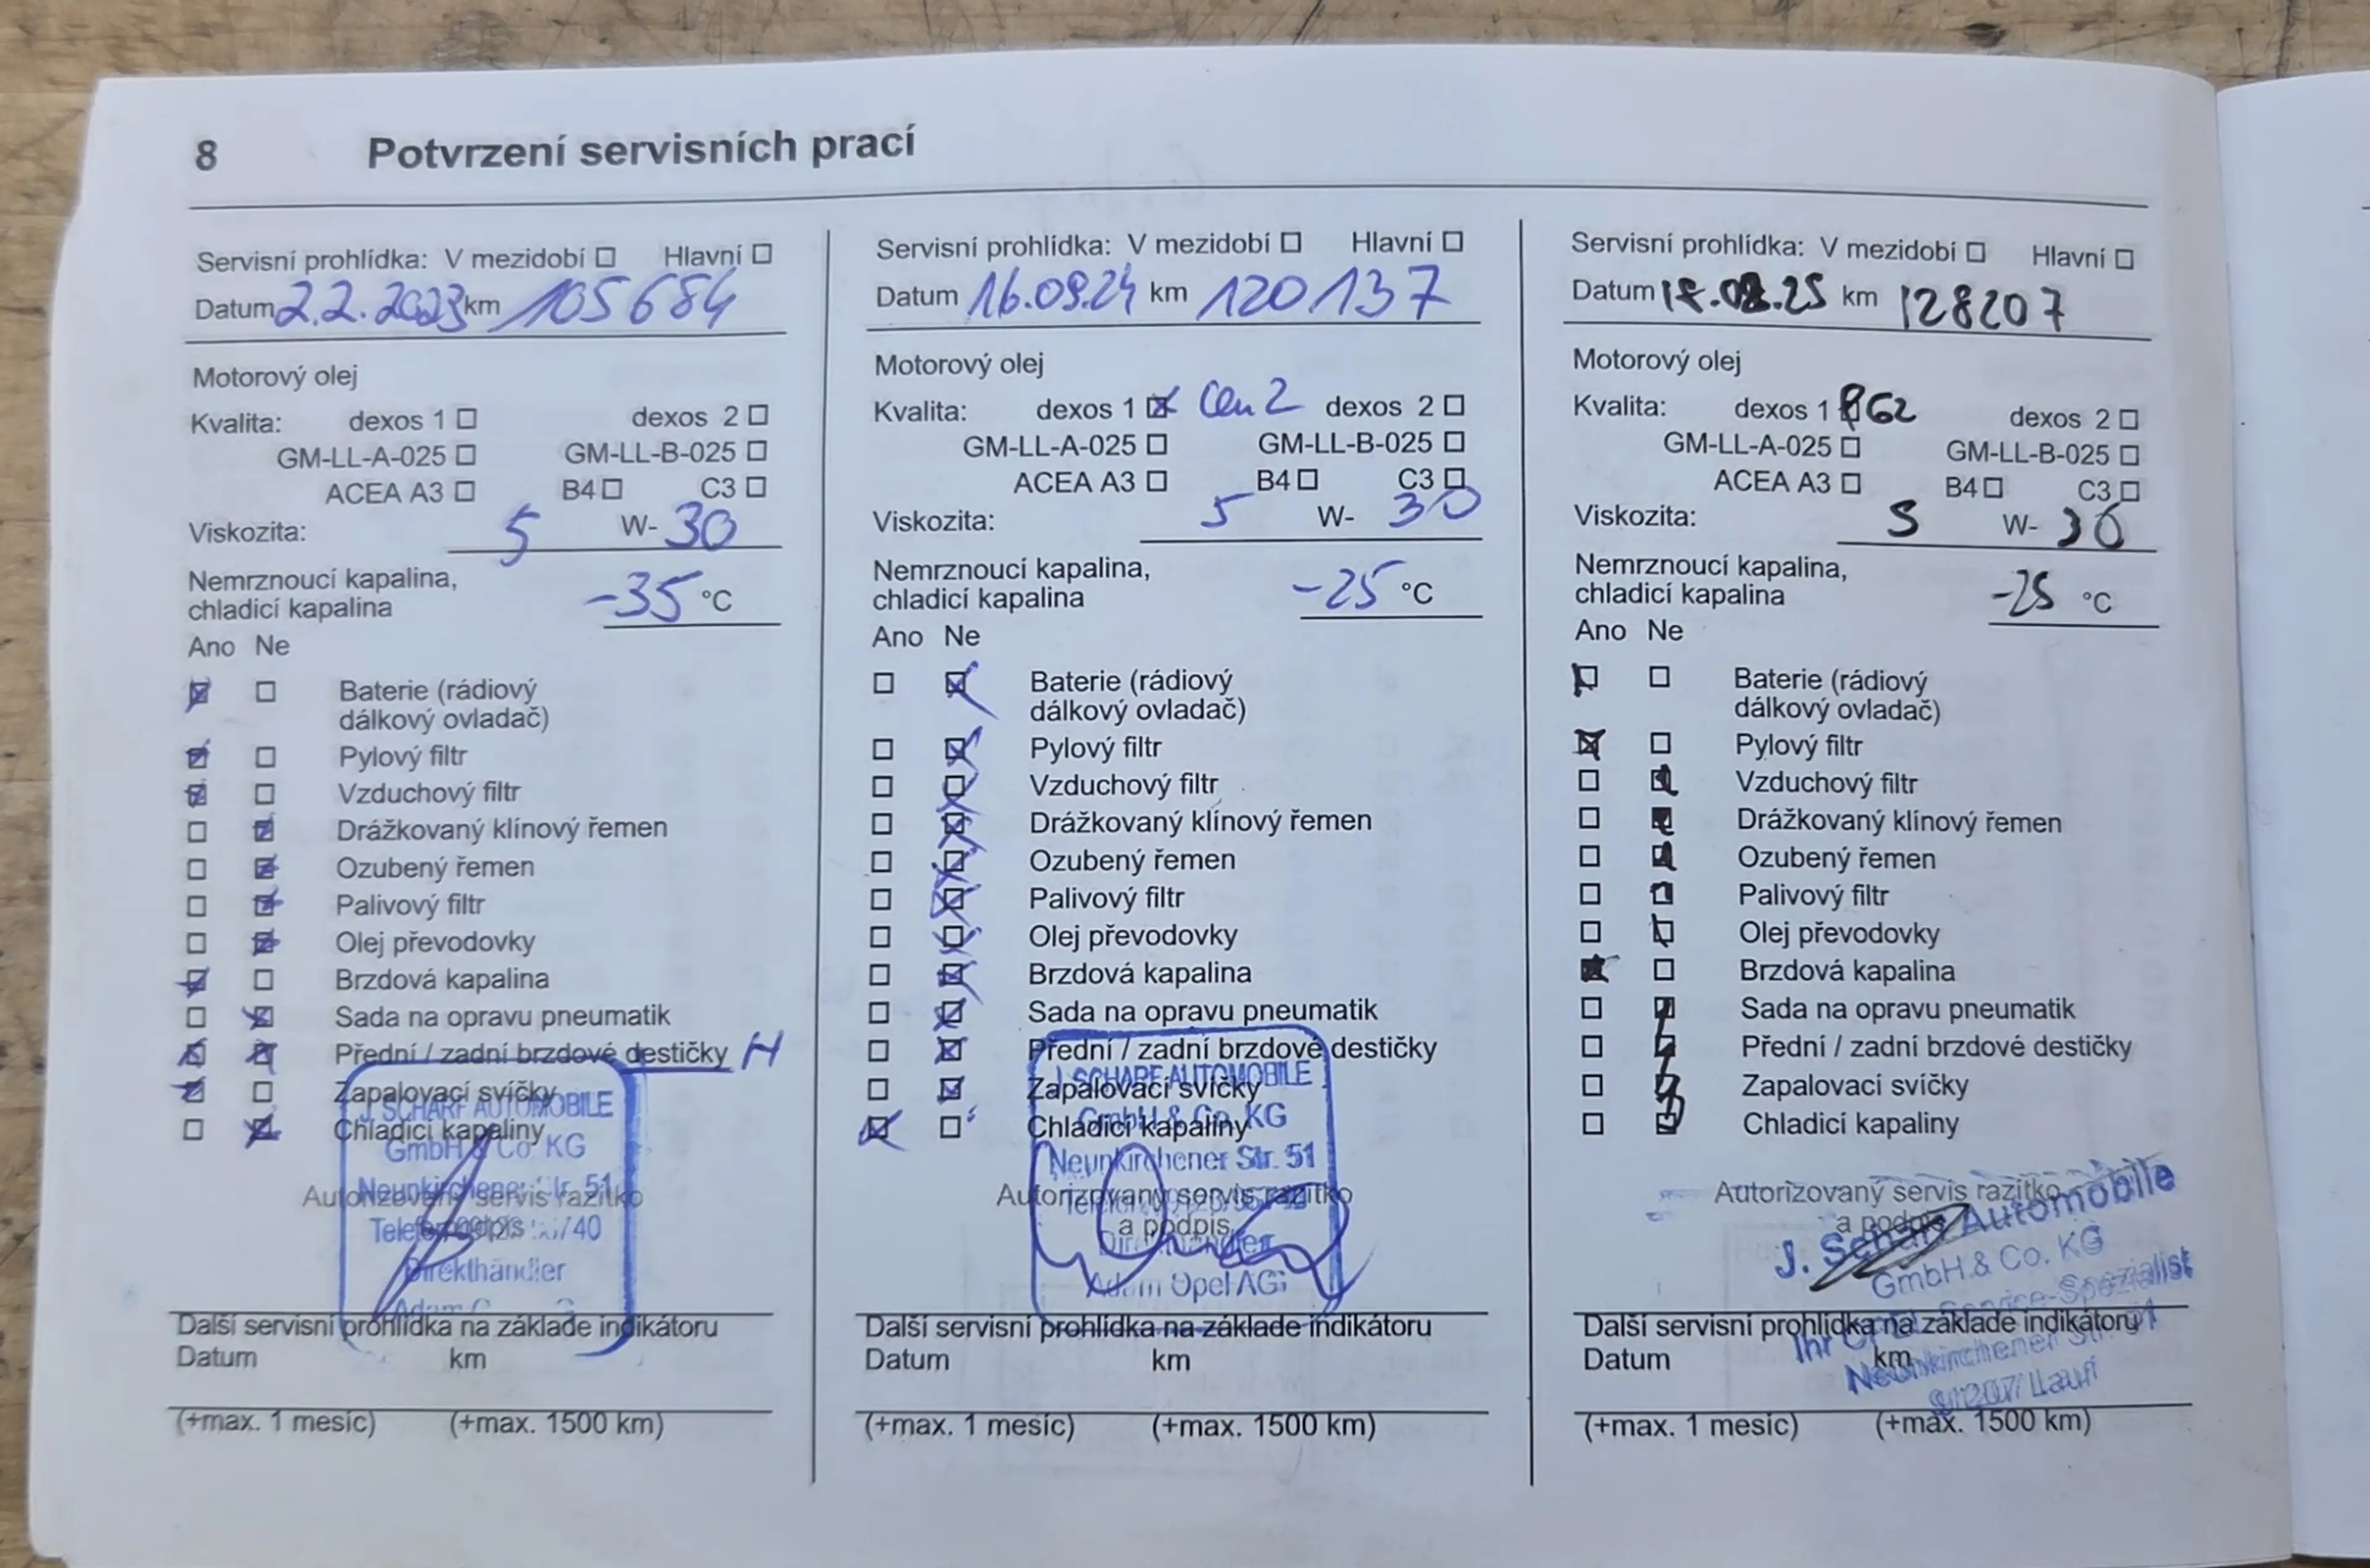 8 Potvrzení servisních prací
Servisní prohlídka: V mezidobí Hlavní
Datum 2.2.2023 km 105684
Motorový olej
Kvalita: dexos 1 dexos 2
GM-LL-A-025 GM-LL-B-025
ACEA A3 B4 C3
Viskozita: 5 W- 30
Nemrznoucí kapalina,
chladicí kapalina -35 °C
Ano Ne
Baterie (rádiový
dálkový ovladač)
Pylový filtr
Vzduchový filtr
Drážkovaný klínový řemen
Ozubený řemen
Palivový filtr
Olej převodovky
Brzdová kapalina
Sada na opravu pneumatik
Přední / zadní brzdové destičky H
Zapalovací svíčky
Chladicí kapaliny
J. SCHARF AUTOMOBILE
GmbH & Co. KG
Neunkirchener Str. 51
Autorizovaný servis razítko
Telefon
Direkthändler
Další servisní prohlídka na základe indikátoru
Datum km
(+max. 1 mesíc) (+max. 1500 km)
Servisní prohlídka: V mezidobí Hlavní
Datum 16.09.24 km 120137
Motorový olej
Kvalita: dexos 1 Gen 2 dexos 2
GM-LL-A-025 GM-LL-B-025
ACEA A3 B4 C3
Viskozita: 5 W- 30
Nemrznoucí kapalina,
chladicí kapalina -25 °C
Ano Ne
Baterie (rádiový
dálkový ovladač)
Pylový filtr
Vzduchový filtr
Drážkovaný klínový řemen
Ozubený řemen
Palivový filtr
Olej převodovky
Brzdová kapalina
Sada na opravu pneumatik
Přední / zadní brzdové destičky
J. SCHARF AUTOMOBILE
Zapalovací svíčky
GmbH & Co. KG
Chladicí kapaliny
Neunkirchener Str. 51
Autorizovaný servis razítko
a podpis
Direkthändler
Adam Opel AG
Další servisní prohlídka na základe indikátoru
Datum km
(+max. 1 mesíc) (+max. 1500 km)
Servisní prohlídka: V mezidobí Hlavní
Datum .25 km 128207
Motorový olej
Kvalita: dexos 1 G2 dexos 2
GM-LL-A-025 GM-LL-B-025
ACEA A3 B4 C3
Viskozita: 5 W- 30
Nemrznoucí kapalina,
chladicí kapalina -25 °C
Ano Ne
Baterie (rádiový
dálkový ovladač)
Pylový filtr
Vzduchový filtr
Drážkovaný klínový řemen
Ozubený řemen
Palivový filtr
Olej převodovky
Brzdová kapalina
Sada na opravu pneumatik
Přední / zadní brzdové destičky
Zapalovací svíčky
Chladicí kapaliny
Autorizovaný servis razítko
a podpis
J. Scharf Automobile
GmbH & Co. KG
Ihr Opel Service-Spezialist
Další servisní prohlídka na základe indikátoru
Datum km
Neunkirchener Str. 51
91207 Lauf
(+max. 1 mesíc) (+max. 1500 km)